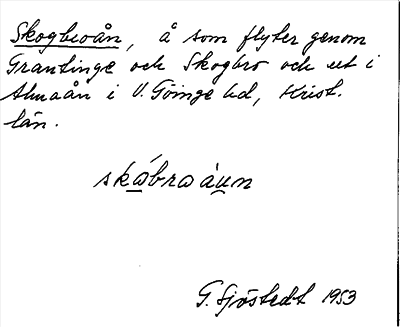 Skogbroån, å som flyter genom
Grantinge och Skogbro och ut i
Almaån i V. Göinge hd, Krist.
län.
skábraáun
G. Sjöstedt 1953